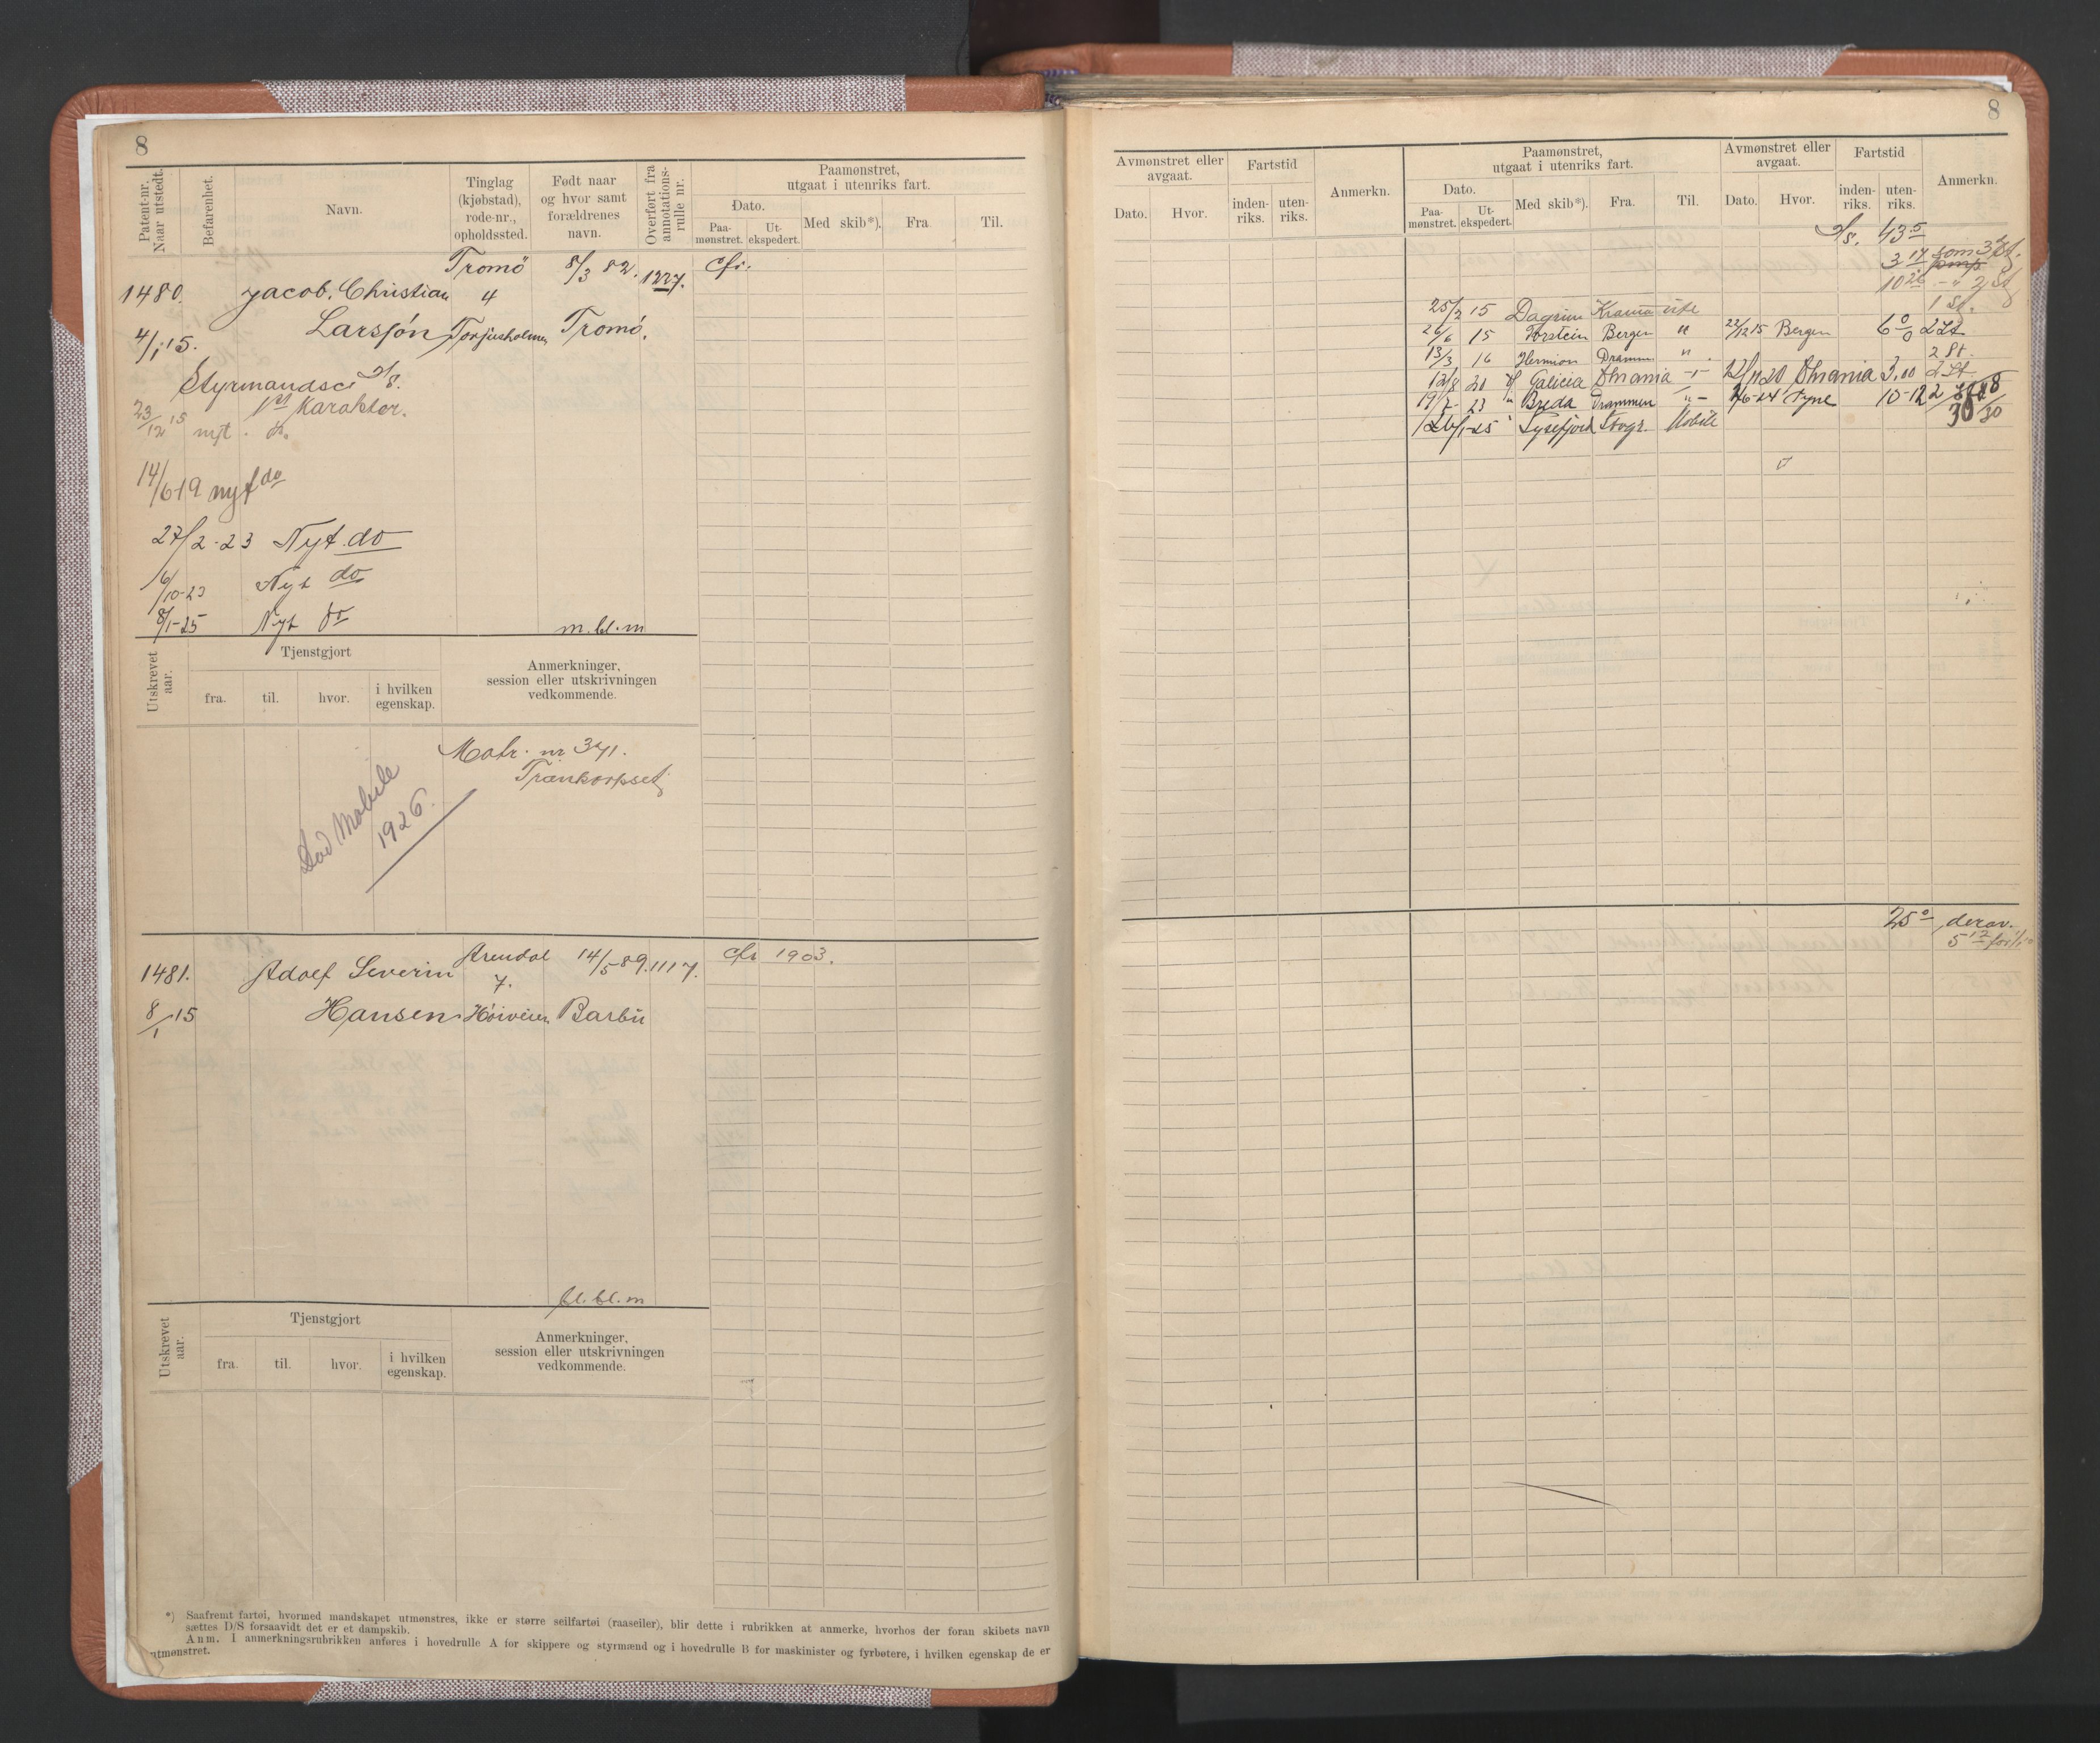 8
Patent-nr.
Naar utstedt.
Befarenhet.
Navn.
Tinglag
(kjøbstad),
rode-nr.,
opholdssted.
Født naar
og hvor samt
forældrenes
navn.
Overført fra
annotations-
rulle nr.
Paamønstret,
utgaat i utenriks fart.
Dato.
Paa-
mønstret.
Ut-
ekspedert.
Med skib*).
Fra.
Til.
1480. Jacob Christian Tromö 4 8/3 82. 1227. cfr.
4/1 15. Larssøn Torjusholmen Tromö.
Styrmandsc
1st Karakter.
23/12 15 nyt do.
14/6 19 nyt do
27/2-23 Nyt do
6/10-23 Nyt do
8/1-25 Nyt do
m.bl.m
Utskrevet
aar.
Tjenstgjort
fra.
til.
hvor.
i hvilken
egenskap.
Anmerkninger,
session eller utskrivningen
vedkommende.
Matr. nr 371.
Trænkorpset
Død Mobile
1926.
1481. Adolf Severin Arendal 7. 14/5-89. 1117. cfr 1903.
8/1 15 Hansen Høiveien Barbu
bl.bl.m
Utskrevet
aar.
Tjenstgjort
fra.
til.
hvor.
i hvilken
egenskap.
Anmerkninger,
session eller utskrivningen
vedkommende.
*) Saafremt fartøi, hvormed mandskapet utmønstres, ikke er større seilfartøi (raaseiler), blir dette i rubrikken at anmerke, hvorhos der foran skibets navn
sættes D/S forsaavidt det er et dampskib.
Anm. I anmerkningsrubrikken anføres i hovedrulle A for skippere og styrmænd og i hovedrulle B for maskinister og fyrbøtere, i hvilken egenskap de er
utmønstret.
8
Avmønstret eller
avgaat.
Dato.
Hvor.
Fartstid
inden-
riks.
uten-
riks.
Anmerkn.
Paamønstret,
utgaat i utenriks fart.
Dato.
Paa-
mønstret.
Ut-
ekspedert.
Med skib*).
Fra.
Til.
Avmønstret eller
avgaat.
Dato.
Hvor.
Fartstid
inden-
riks.
uten-
riks.
Anmerkn.
43 5
3 17 som 3 St.
10 26 - " 2 St
25/2 15 Dagrun Krania ute 1 St.
26/6 15 Torstein Bergen " 22/12 15 Bergen 6 0 2 St
13/3 16 Hermion Dramm " 2 St.
12/8 20 Galicia Khrania -"- 12/11 20 Khrania 3.00 2 St
19/7-23 " Breda Drammen -"- 7/6-24 Tyne 10-12 2 St
26/1-25 " Lysefjord Mobile 30/30
25 0 derav
5 12